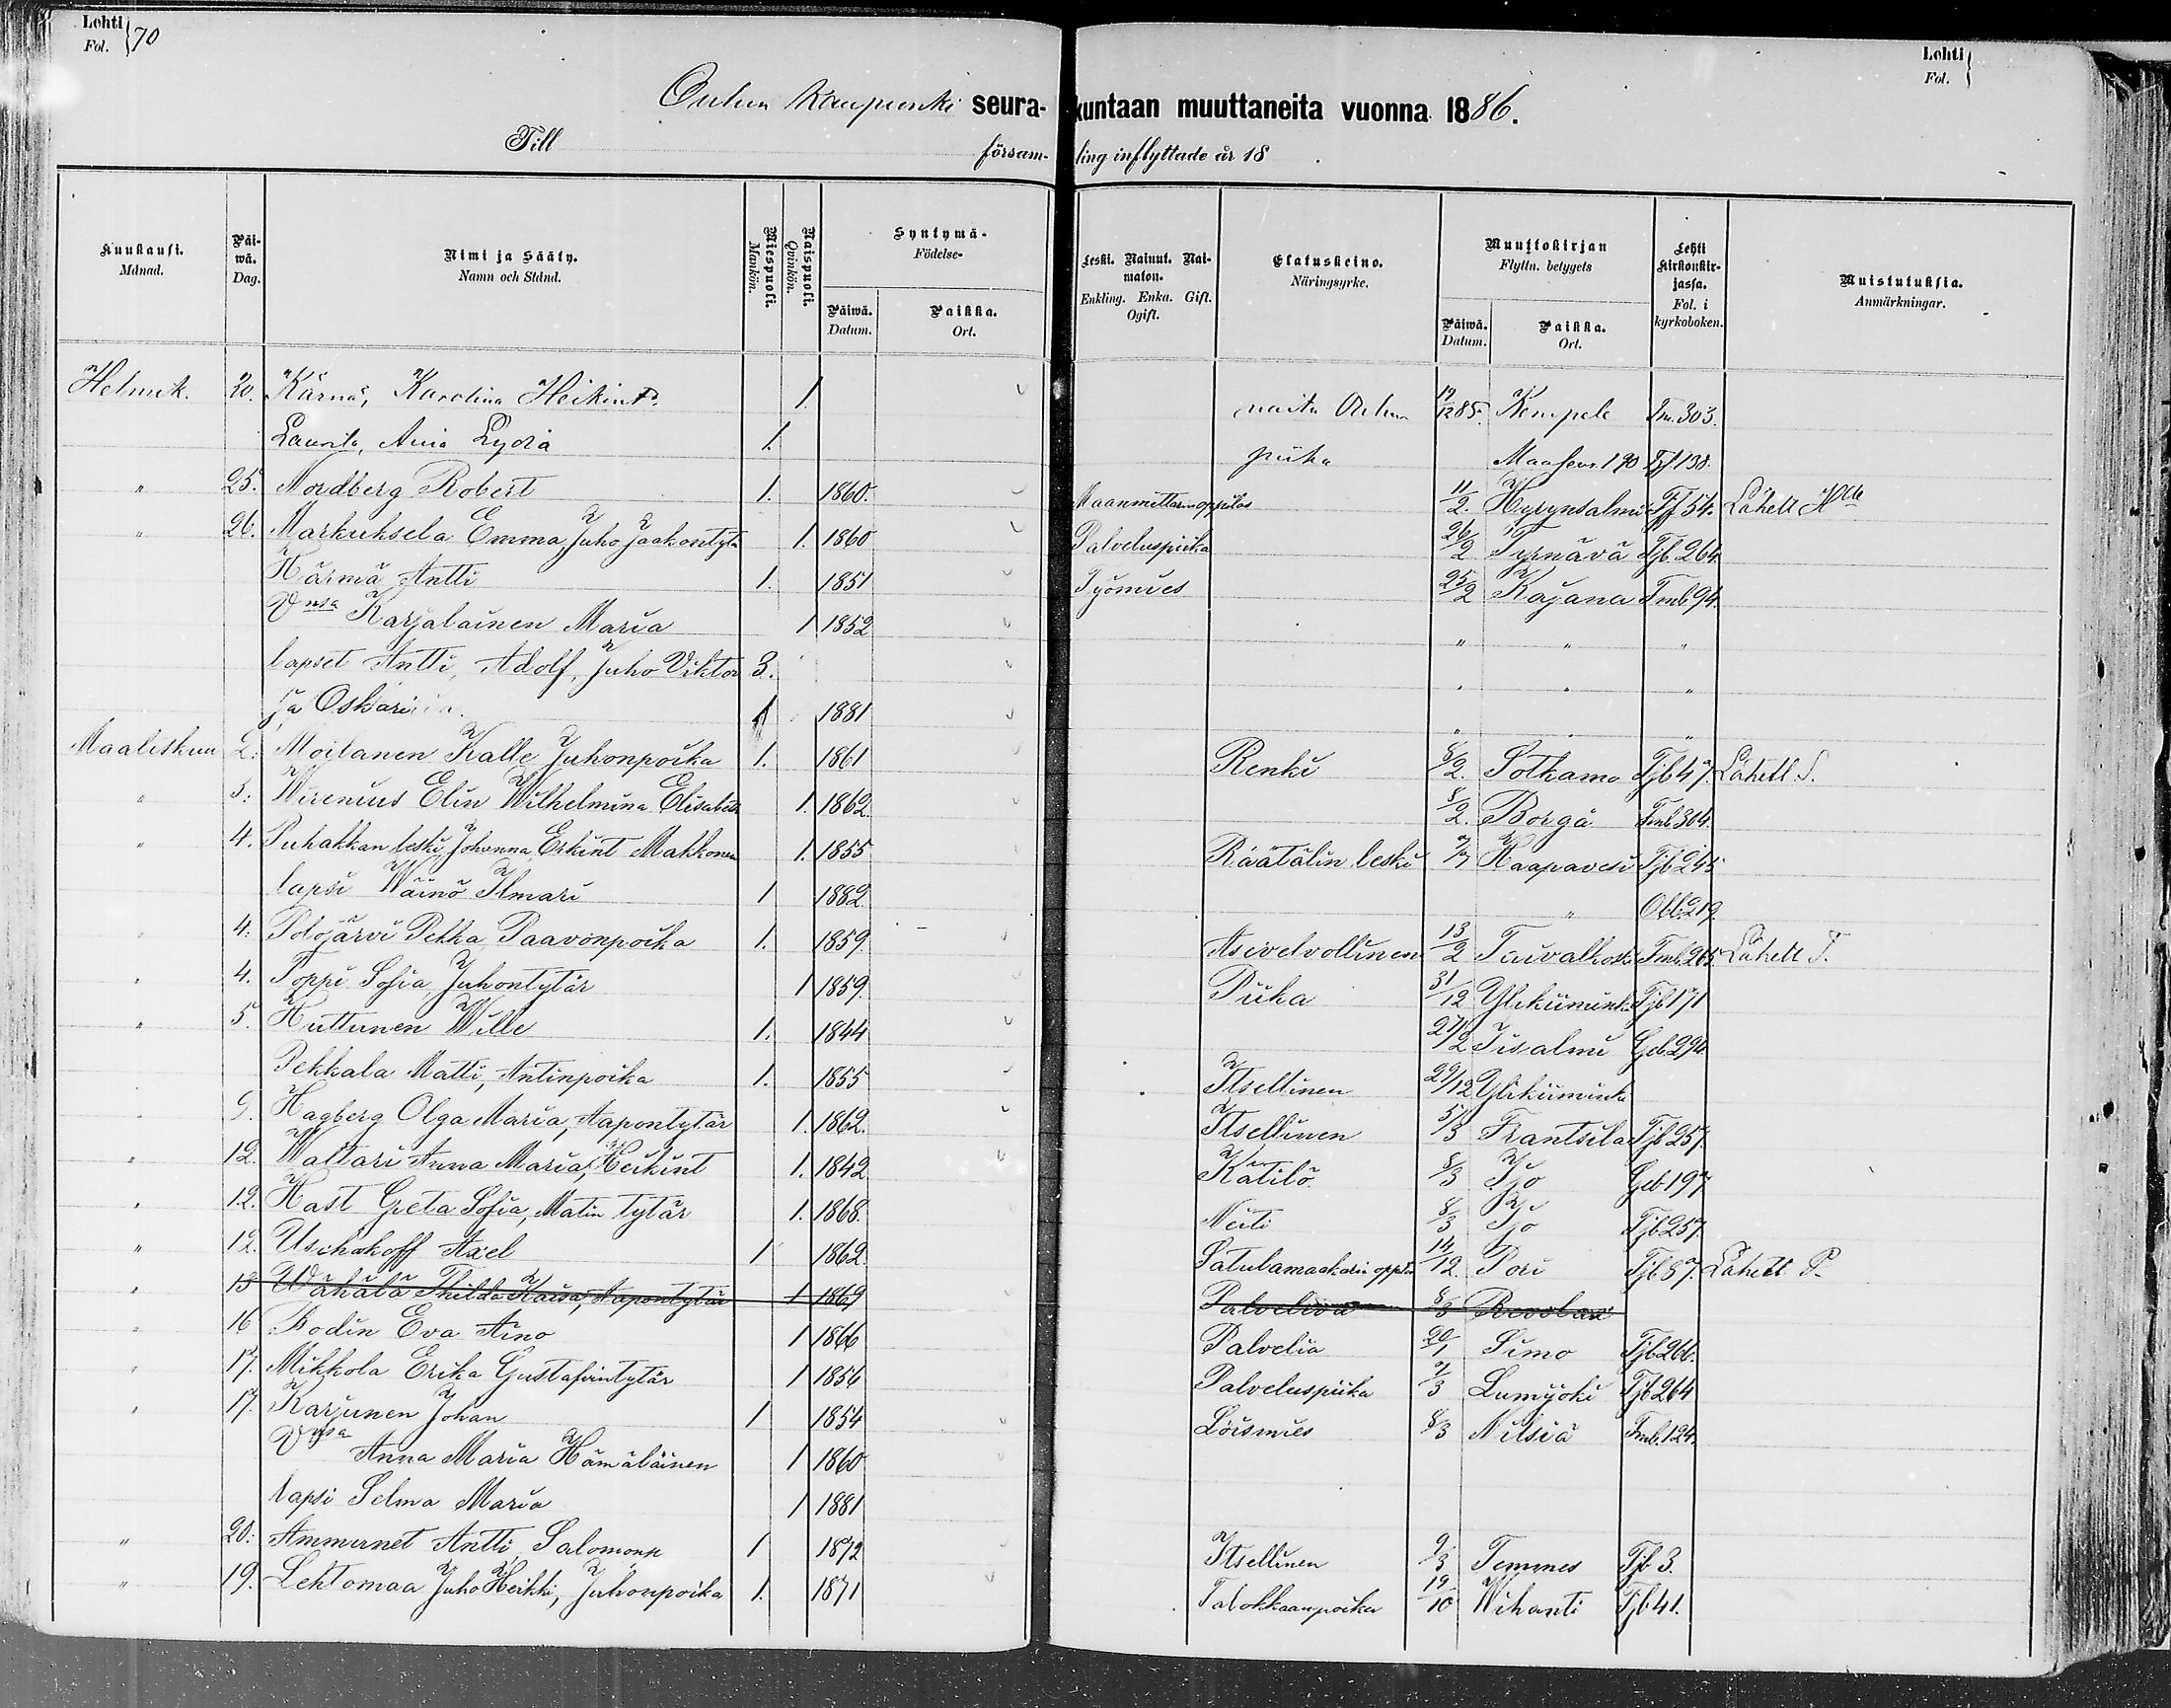 Lehti
Fol. 70
Lehti
Fol.
Oulun kaupunki seura-kuntaan muuttaneita vuonna 1886.
Till församling inflyttade år 18 .
Kuukausi. Månad.
Päiwä. Dag.
Nimi ja Sääty. Namn och Stånd.
Miespuoli. Mankön.
Naispuoli. Qvinkön.
Syntymä- Födelse-
Päiwä. Datum.
Paikka. Ort.
Leski. Nainut. Naimaton. Enkling. Enka. Gift. Ogift.
Elatuskeino. Näringsyrke.
Muuttokirjan Flyttn. betygets
Päiwä. Datum.
Paikka. Ort.
Lehti Kirkonkirjassa. Fol. i kyrkoboken.
Muistutuksia. Anmärkningar.
Helmik. 20. Kärnä, Karolina Heikint. 1. naitu Oulun 19/12 85. Kempele Tm. 303.
Laurila, Aina Lydia 1. piika Maaseur. 190 Tjf 138.
" 25. Nordberg Robert 1. 1860. Maanmittarin oppilas 11/2. Hyrynsalmi Tjf 54. Lähett
" 26. Markuksela Emma, Juho Jaakontytä 1. 1860 Palveluspiika 26/2 Tyrnävä Tjb. 264.
Härmä Antti 1. 1851 Työmies 25/2 Kajana Tmb. 94.
Vmsa Karjalainen Maria 1 1852 " " "
lapset Antti, Adolf, Juho Viktor 3. " " "
ja Oskari 1 1881 " " "
Maaliskuu 2. Moilanen Kalle Juhonpoika 1. 1861 Renki 8/2. Sotkamo Tjb 47. Lähett S.
" 3. Wirenius Elin Wilhelmina Elisabeth 1. 1862. 8/2. Borgå Tmb. 304.
" 4. Puhakkan leski, Johanna Erkint Makkonen 1. 1855 Räätälin leski Haapavesi Tjb 245
lapsi Wäinö Ilmari 1 1882 " Obb. 219.
" 4. Polojärvi Pekka Paavonpoika 1. 1859. Asevelvollinen 13/2 Taivalkoski Tmb. 265. Lähett T.
" 4. Toppi Sofia, Juhontytär 1 1859. Piika 31/12 Ylikiiminki Tjb 171
" 5. Huttunen Wille 1. 1844 27/2 Iisalmi Geb. 294.
Pekkala Matti, Antinpoika 1. 1855 Itsellinen 29/12 Ylikiiminki
" 9. Hagberg Olga Maria, Aapontytär 1. 1862. Itsellinen 5/3 Frantsila Tjb 257.
" 12. Waltari Anna Maria, Heikint 1. 1842 Kätilö 8/3 Ijo Geb 197
" 12. Hast Greta Sofia, Matin tytär 1. 1868. Neiti 8/3 Ijo Tjb 257.
" 12. Uschakoff Axel 1 1862. Satulamaakarin oppilas 14/12. Pori Tjb 87. Lähett P.
" 13 Wähälä Thilda Kaisa, Aapontytär 1 1869 Palvelia 8/3 Revolax
" 16 Bodin Eva Aino 1 1866 Palvelia 20/1 Simo Tjb 266.
" 17. Mikkola Erika Gustafintytär 1 1856 Palveluspiika 9/3 Lumijoki Tjb 264
" 17. Karjunen Johan 1 1854 Loismies 8/3 Nilsiä Tmb. 124.
Vmsa Anna Maria Hämäläinen 1 1860
lapsi Selma Maria 1 1881
" 20. Ammunet Antti Salomonp 1 1872 Itsellinen 9/3 Temmes Tjb 3.
" 19. Lehtomaa Juho Heikki, Juhonpoika 1. 1871 Talokkaanpoika 19/10 Wihanti Tjb 41.